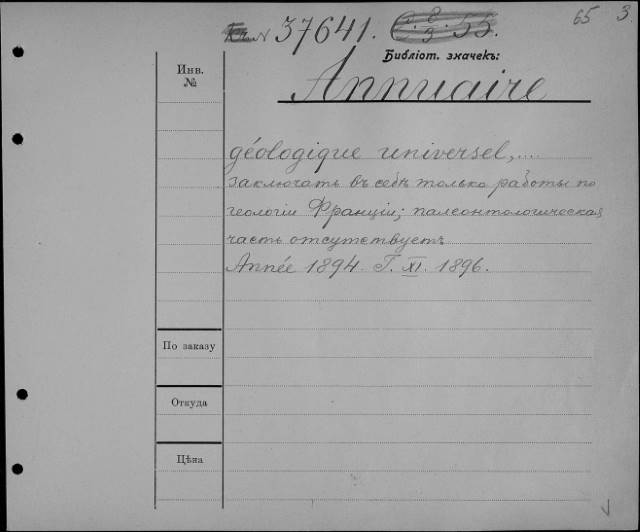 № 37641. 65 3.
Библіот. значекъ:
Инв.
№
Annuaire
géologique universel,....
заключать въ себѣ только работы по
геологіи Франціи; палеонтологическая
часть отсутствуетъ
Année 1894. T. XI. 1896.
По заказу
Откуда
Цѣна